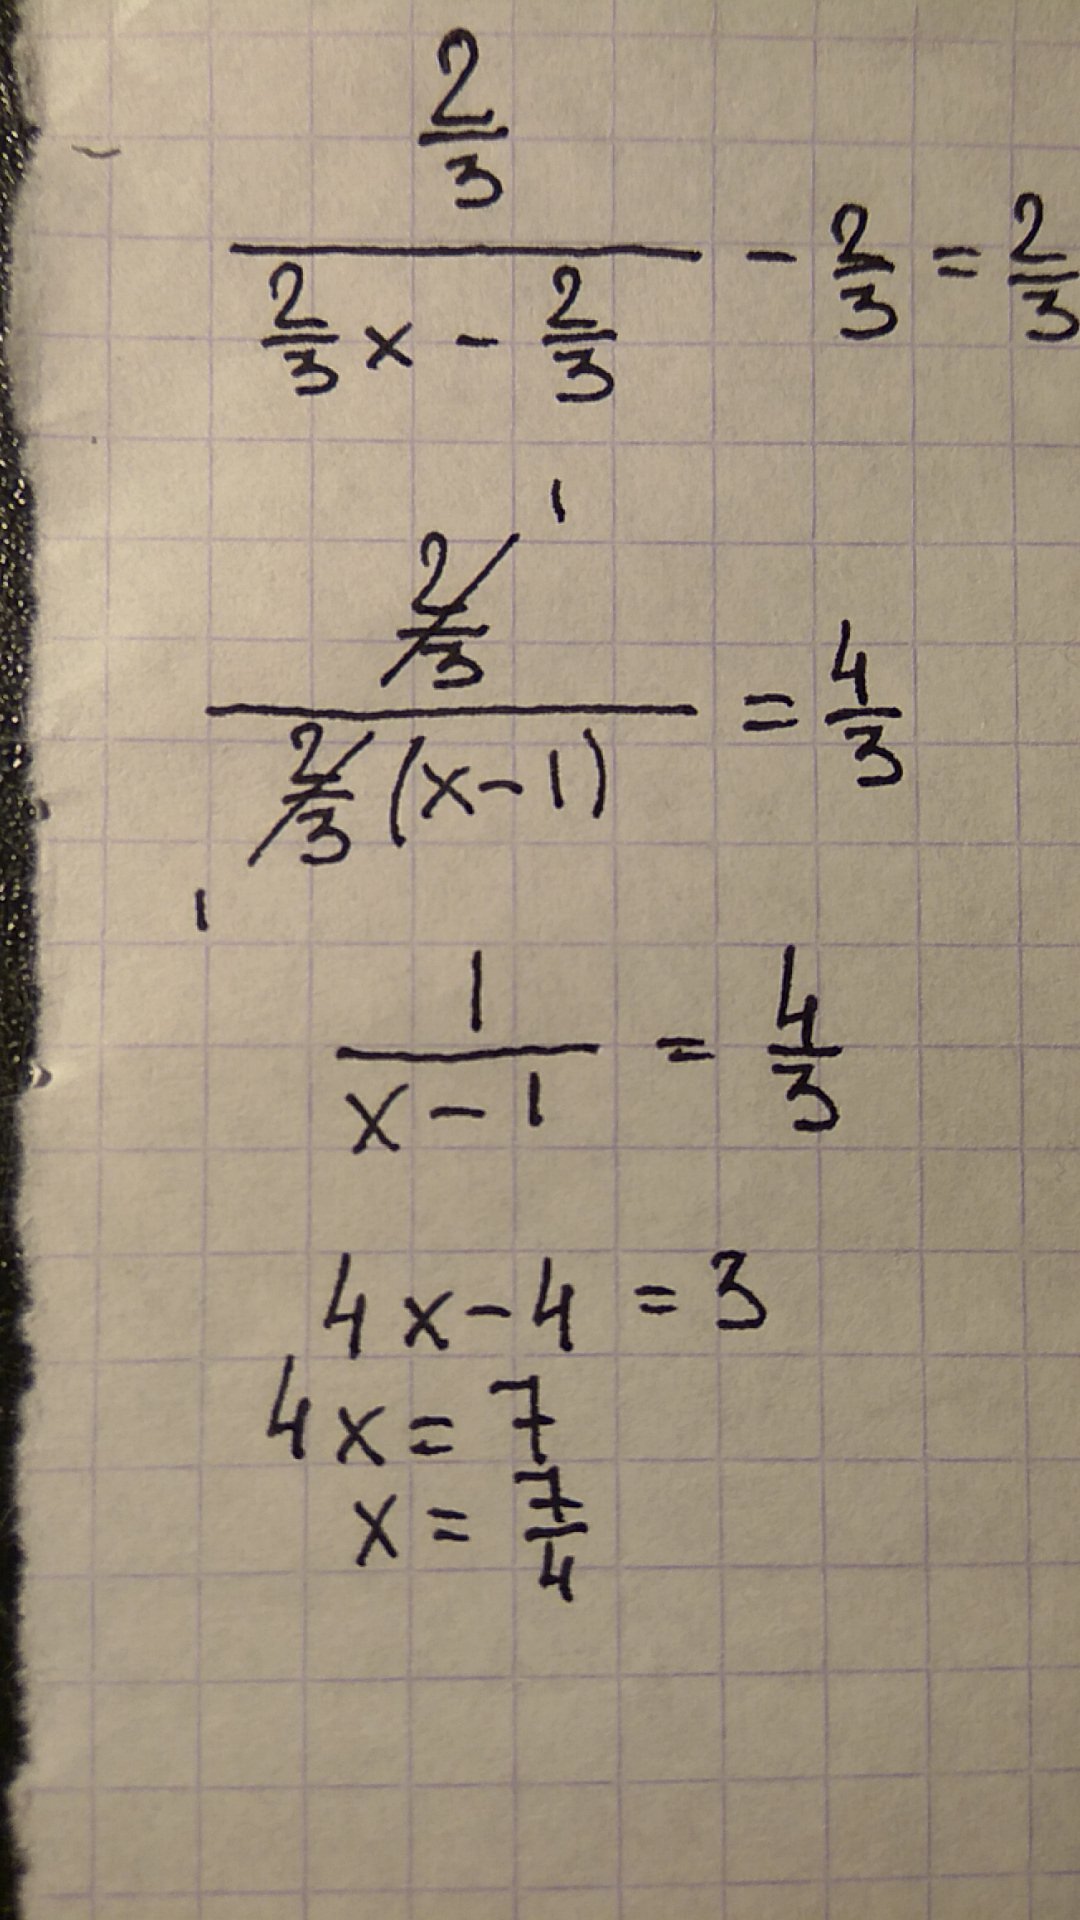 (2/3) / (2/3 x - 2/3) - 2/3 = 2/3
1
(2/3) / (2/3 (x-1)) = 4/3
1
1 / (x-1) = 4/3
4x-4 = 3
4x = 7
x = 7/4